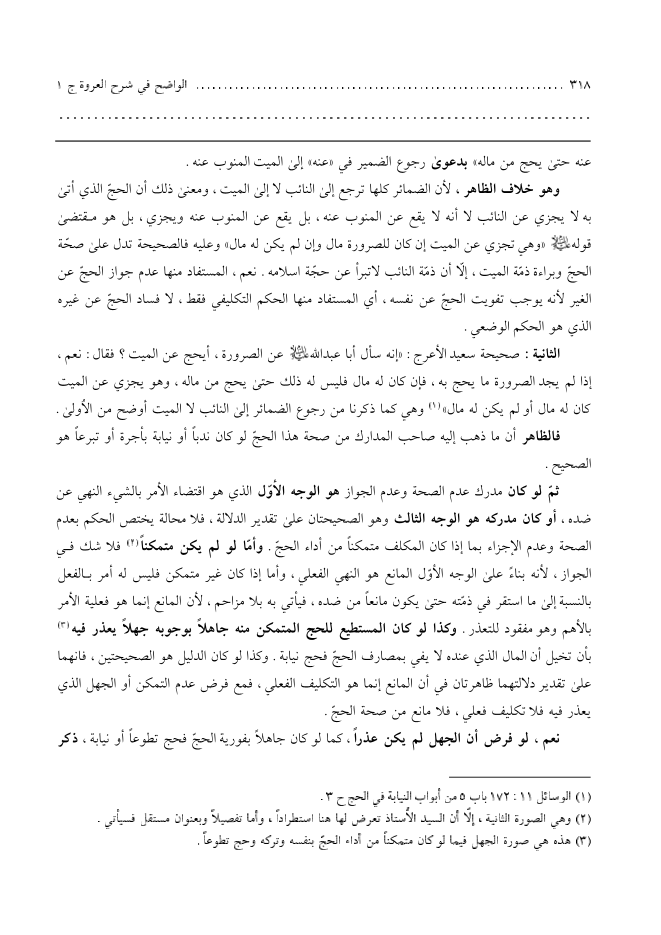 ٣١٨ ................................................................ الواضح في شرح العروة ج ١
................................................................................
عنه حتىٰ يحج من ماله» بدعوىٰ رجوع الضمير في «عنه» إلىٰ الميت المنوب عنه .
وهو خلاف الظاهر ، لأن الضمائر كلها ترجع إلىٰ النائب لا إلىٰ الميت ، ومعنىٰ ذلك أن الحجّ الذي أتىٰ
به لا يجزي عن النائب لا أنه لا يقع عن المنوب عنه ، بل يقع عن المنوب عنه ويجزي ، بل هو مـقتضىٰ
قوله عليه السلام «وهي تجزي عن الميت إن كان للصرورة مال وإن لم يكن له مال» وعليه فالصحيحة تدل علىٰ صحّة
الحجّ وبراءة ذمّة الميت ، إلّا أن ذمّة النائب لاتبرأ عن حجّة اسلامه . نعم ، المستفاد منها عدم جواز الحجّ عن
الغير لأنه يوجب تفويت الحجّ عن نفسه ، أي المستفاد منها الحكم التكليفي فقط ، لا فساد الحجّ عن غيره
الذي هو الحكم الوضعي .
الثانية : صحيحة سعيد الأعرج : «إنه سأل أبا عبدالله عليه السلام عن الصرورة ، أيحج عن الميت ؟ فقال : نعم ،
إذا لم يجد الصرورة ما يحج به ، فإن كان له مال فليس له ذلك حتىٰ يحج من ماله ، وهو يجزي عن الميت
كان له مال أو لم يكن له مال»(١) وهي كما ذكرنا من رجوع الضمائر إلىٰ النائب لا الميت أوضح من الأولىٰ .
فالظاهر أن ما ذهب إليه صاحب المدارك من صحة هذا الحجّ لو كان ندباً أو نيابة بأجرة أو تبرعاً هو
الصحيح .
ثمّ لو كان مدرك عدم الصحة وعدم الجواز هو الوجه الأوّل الذي هو اقتضاء الأمر بالشيء النهي عن
ضده ، أو كان مدركه هو الوجه الثالث وهو الصحيحتان علىٰ تقدير الدلالة ، فلا محالة يختص الحكم بعدم
الصحة وعدم الإجزاء بما إذا كان المكلف متمكناً من أداء الحجّ . وأمّا لو لم يكن متمكناً(٢) فلا شك فـي
الجواز ، لأنه بناءً علىٰ الوجه الأوّل المانع هو النهي الفعلي ، وأما إذا كان غير متمكن فليس له أمر بـالفعل
بالنسبة إلىٰ ما استقر في ذمّته حتىٰ يكون مانعاً من ضده ، فيأتي به بلا مزاحم ، لأن المانع إنما هو فعلية الأمر
بالأهم وهو مفقود للتعذر . وكذا لو كان المستطيع للحج المتمكن منه جاهلاً بوجوبه جهلاً يعذر فيه(٣)
بأن تخيل أن المال الذي عنده لا يفي بمصارف الحجّ فحج نيابة . وكذا لو كان الدليل هو الصحيحتين ، فانهما
علىٰ تقدير دلالتهما ظاهرتان في أن المانع إنما هو التكليف الفعلي ، فمع فرض عدم التمكن أو الجهل الذي
يعذر فيه فلا تكليف فعلي ، فلا مانع من صحة الحجّ .
نعم ، لو فرض أن الجهل لم يكن عذراً ، كما لو كان جاهلاً بفورية الحجّ فحج تطوعاً أو نيابة ، ذكر
(١) الوسائل ١١ : ١٧٢ باب ٥ من أبواب النيابة في الحج ح ٣ .
(٢) وهي الصورة الثانية ، إلّا أن السيد الاُستاذ تعرض لها هنا استطراداً ، وأما تفصيلاً وبعنوان مستقل فسيأتي .
(٣) هذه هي صورة الجهل فيما لو كان متمكناً من أداء الحجّ بنفسه وتركه وحج تطوعاً .